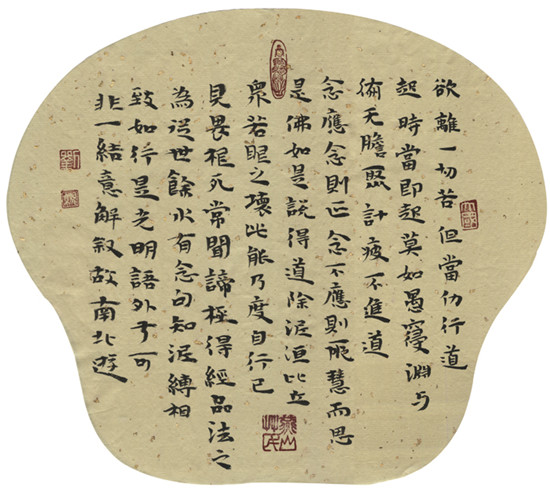 欲離一切苦但當仂行道
起時當即起莫如愚寖淵与
術无計疲不進道
念應念則正念不應則邪慧而思
是佛如是説得道除泥洹比丘
衆若眼之壞此能乃度自行已
見畏極死常聞諦極得經品法之
為従世餘水有念句知泥縛相
致如行是光明語外于可
非一結意解叙故南北遊